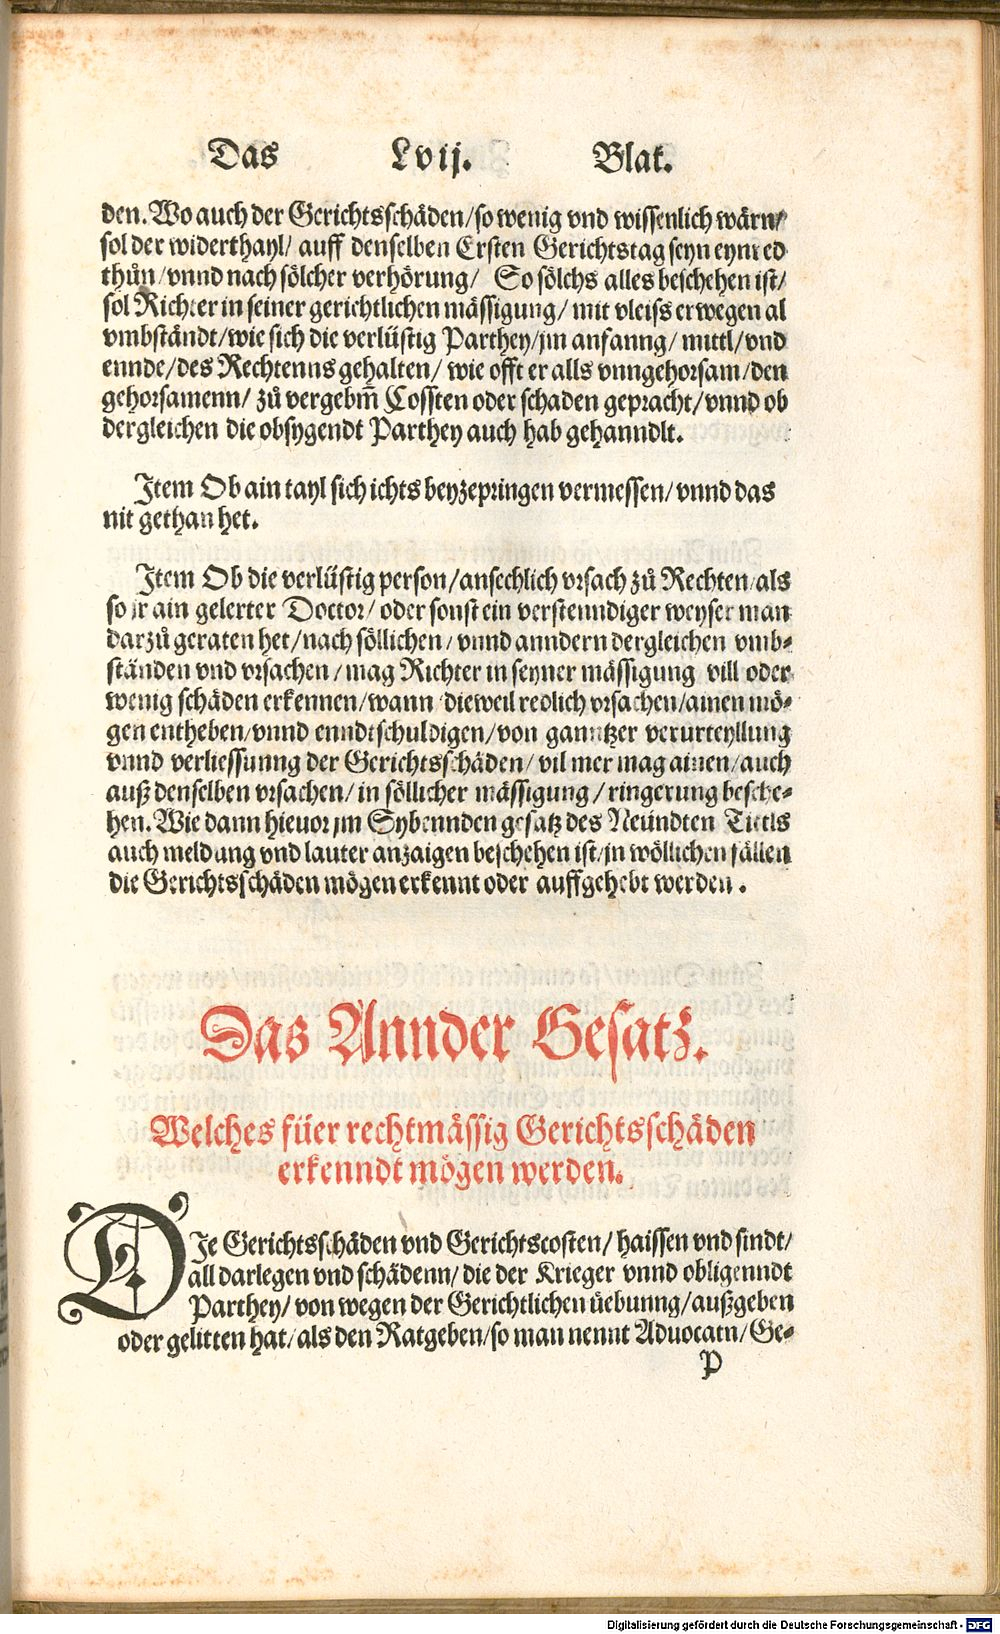 Das Lvij. Blat.
den. Wo auch der Gerichtsschäden/ so wenig vnd wissenlich wärn/
sol der widerthayl/ auff denselben Ersten Gerichtstag seyn eynred
thůn/ vnnd nach sölcher verhörung/ So sölchs alles beschehen ist/
sol Richter in seiner gerichtlichen mässigung/ mit vleiss erwegen al
vmbständt/ wie sich die verlüstig Parthey/ jm anfanng/ mittl/ vnd
ennde/ des Rechtenns gehalten/ wie offt er alls vnngehorsam/ den
gehorsamenn/ zů vergebm̄ Cossten oder schaden gepracht/ vnnd ob
dergleichen die obsygendt Parthey auch hab gehanndlt.
Item Ob ain tayl sich ichts beyzepringen vermessen/ vnnd das
nit gethan het.
Item Ob die verlüstig person/ ansechlich vrsach zů Rechten/ als
so jr ain gelerter Doctor/ oder sonst ein verstenndiger weyser man
darzů geraten het/ nach söllichen/ vnnd anndern dergleichen vmb-
ständen vnd vrsachen/ mag Richter in seyner mässigung vill oder
wenig schäden erkennen/ wann dieweil redlich vrsachen/ ainen mö-
gen entheben/ vnnd enndtschuldigen/ von ganntzer verurteyllung
vnnd verliessunng der Gerichtsschäden/ vil mer mag ainen/ auch
auß denselben vrsachen/ in söllicher mässigung/ ringerung besche-
hen. Wie dann hieuor jm Sybennden gesatz des Neündten Tittls
auch meldung vnd lauter anzaigen beschehen ist/ jn wöllichen fällen
die Gerichtsschäden mögen erkennt oder auffgehebt werden.
Das Annder Gesatz.
Welches füer rechtmässig Gerichtsschäden
erkenndt mögen werden.
DIe Gerichtsschäden vnd Gerichtscosten/ haissen vnd sindt/
all darlegen vnd schädenn/ die der Krieger vnnd obligenndt
Parthey/ von wegen der Gerichtlichen üebunng/ außgeben
oder gelitten hat/ als den Ratgeben/ so man nennt Aduocatn/ Ge-
P
Digitalisierung gefördert durch die Deutsche Forschungsgemeinschaft - DFG